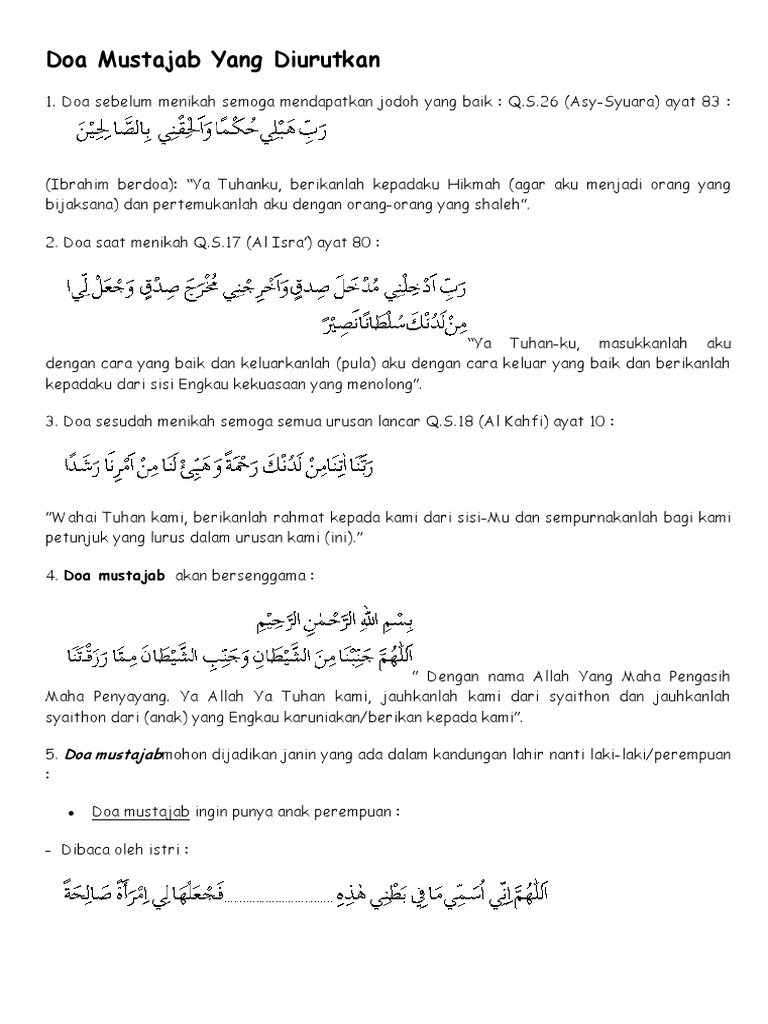 Doa Mustajab Yang Diurutkan
1. Doa sebelum menikah semoga mendapatkan jodoh yang baik : Q.S.26 (Asy-Syuara) ayat 83 :
رَبِّ هَبْلِي حُكْمًا وَاَلْحِقْنِي بِالصَّالِحِيْنَ
(Ibrahim berdoa): “Ya Tuhanku, berikanlah kepadaku Hikmah (agar aku menjadi orang yang
bijaksana) dan pertemukanlah aku dengan orang-orang yang shaleh”.
2. Doa saat menikah Q.S.17 (Al Isra’) ayat 80 :
رَبِّ اَدْخِلْنِي مُدْخَلَ صِدقٍ وَاَخْرِجْنِي مُخْرَجَ صِدْقٍ وَجْعَلْ لِّيْ ا
مِنْ لَدُنْكَ سُلْطَانًا نَصِيْرً
“Ya Tuhan-ku, masukkanlah aku
dengan cara yang baik dan keluarkanlah (pula) aku dengan cara keluar yang baik dan berikanlah
kepadaku dari sisi Engkau kekuasaan yang menolong”.
3. Doa sesudah menikah semoga semua urusan lancar Q.S.18 (Al Kahfi) ayat 10 :
رَبَّنَا اٰتِنَا مِنْ لَدُنْكَ رَحْمَةً وَهَيِّئْ لَنَا مِنْ اَمْرِنَا رَشَدًا
”Wahai Tuhan kami, berikanlah rahmat kepada kami dari sisi-Mu dan sempurnakanlah bagi kami
petunjuk yang lurus dalam urusan kami (ini).”
4. Doa mustajab akan bersenggama :
بِسْمِ اللهِ الرَّحْمٰنِ الرَّحِيْمِ
اَللّٰهُمَّ جَنِّبْنَا مِنَ الشَّيْطَانِ وَجَنِّبِ الشَّيْطَانَ مِمَّا رَزَقْتَنَا
” Dengan nama Allah Yang Maha Pengasih
Maha Penyayang. Ya Allah Ya Tuhan kami, jauhkanlah kami dari syaithon dan jauhkanlah
syaithon dari (anak) yang Engkau karuniakan/berikan kepada kami”.
5. Doa mustajabmohon dijadikan janin yang ada dalam kandungan lahir nanti laki-laki/perempuan
:
• Doa mustajab ingin punya anak perempuan :
- Dibaca oleh istri :
اَللّٰهُمَّ اِنِّي اُسَمِّي مَا فِي بَطْنِي هٰذِهِ ................................ فَجْعَلْهَا لِي اِمْرَأَةً صَالِحَةً